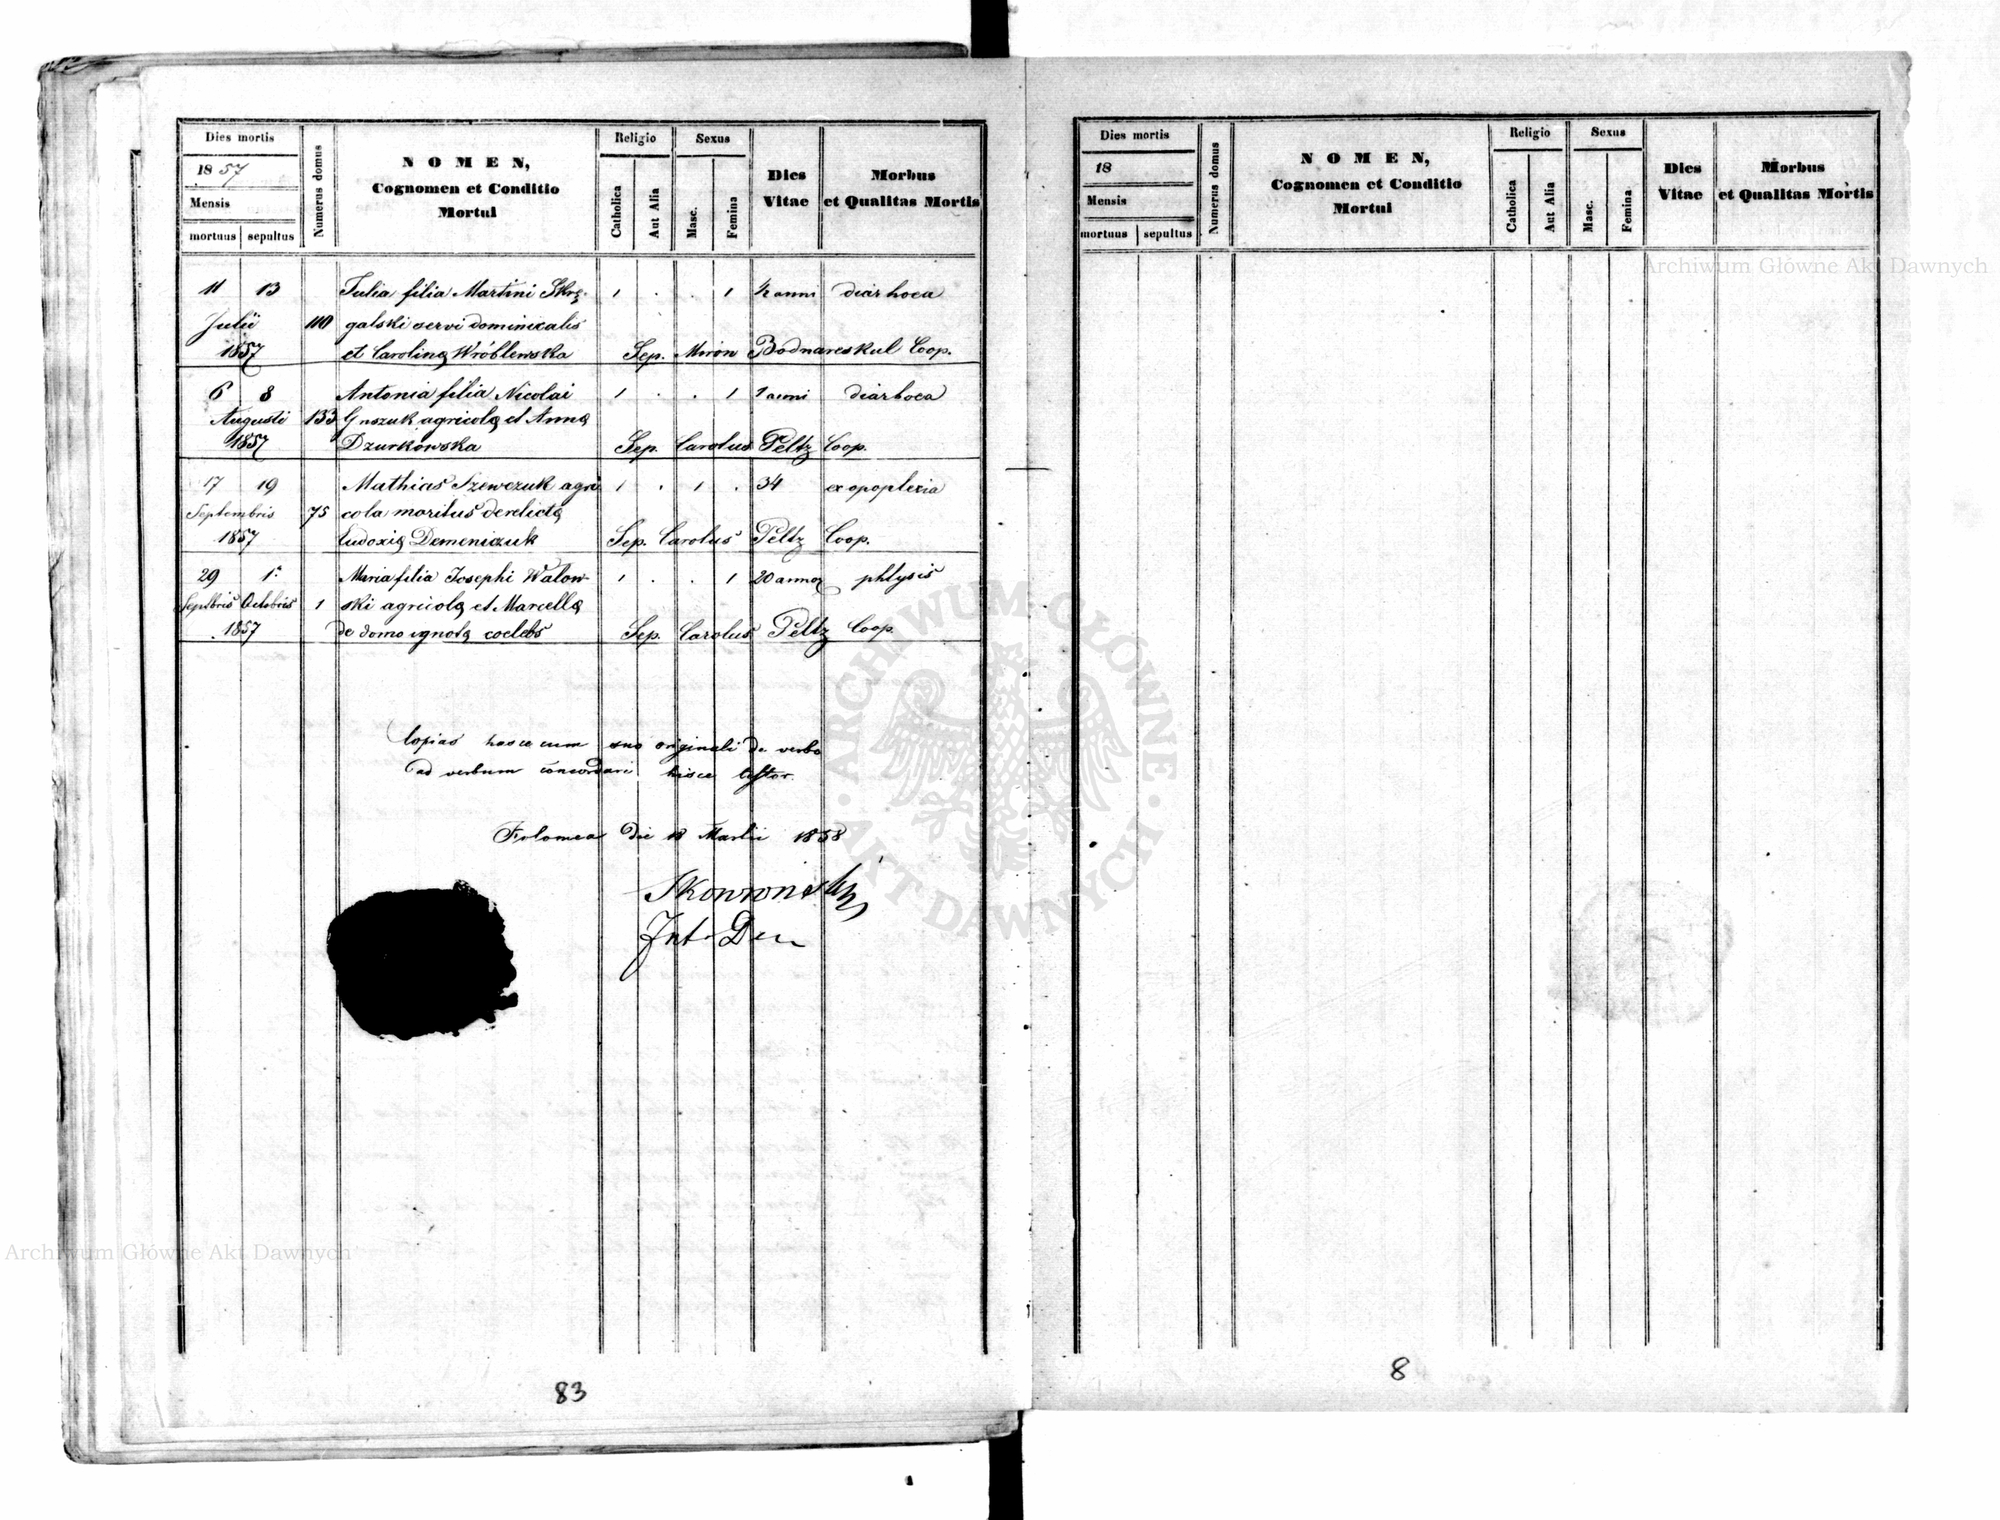 Dies mortis
1857
Mensis
mortuus sepultus
Numerus domus
NOMEN,
Cognomen et Conditio
Mortui
Religio
Catholica
Aut Alia
Sexus
Masc.
Femina
Dies
Vitae
Morbus
et Qualitas Mortis
11 13 Julia filia Martini Skrę- 1 . . 1 ½ anni diarhoea
Julii 110 galski servi dominicalis
1857 et Carolinę Wróblewska Sep. Miron Bodnareskul Coop.
6 8 Antonia filia Nicolai 1 . . 1 1 anni diarhoea
Augusti 133 agricolę et Annę
1857 Dzurkowska Sep. Carolus Peltz Coop.
17 19 Mathias Szewczuk agri 1 . 1 . 34 ex opoplexia
Septembris 75 cola maritus derelictę
1857 Eudoxię Demeniczuk Sep. Carolus Peltz Coop.
29 1. Maria filia Josephi Walow- 1 . . 1 20 annor phtysis
Septbris Octobris 1 ski agricolę et Marcellę
1857 de domo ignotę coelebs Sep. Carolus Peltz Coop.
Copias hasce cum suo originali de verbo
ad verbum concordari hisce testor.
Kolomea die 18 Martii 1858
Skowronski
83
Dies mortis
18
Mensis
mortuus sepultus
Numerus domus
NOMEN,
Cognomen et Conditio
Mortui
Religio
Catholica
Aut Alia
Sexus
Masc.
Femina
Dies
Vitae
Morbus
et Qualitas Mortis
8
Archiwum Główne Akt Dawnych
ARCHIWUM GŁÓWNE · AKT DAWNYCH ·
Archiwum Główne Akt Dawnych